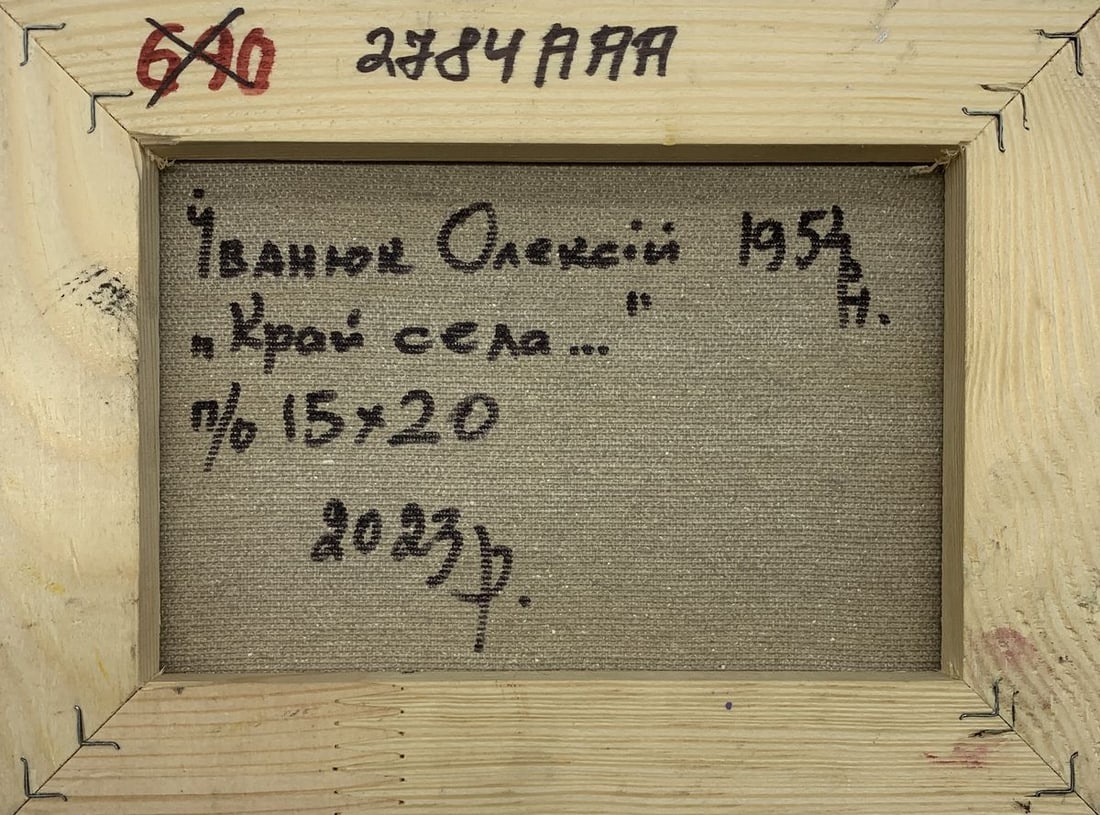 690 2784 ААА
Іванюк Олексій 1954 р.н.
„Край села..."
п/о 15x20
2023р.